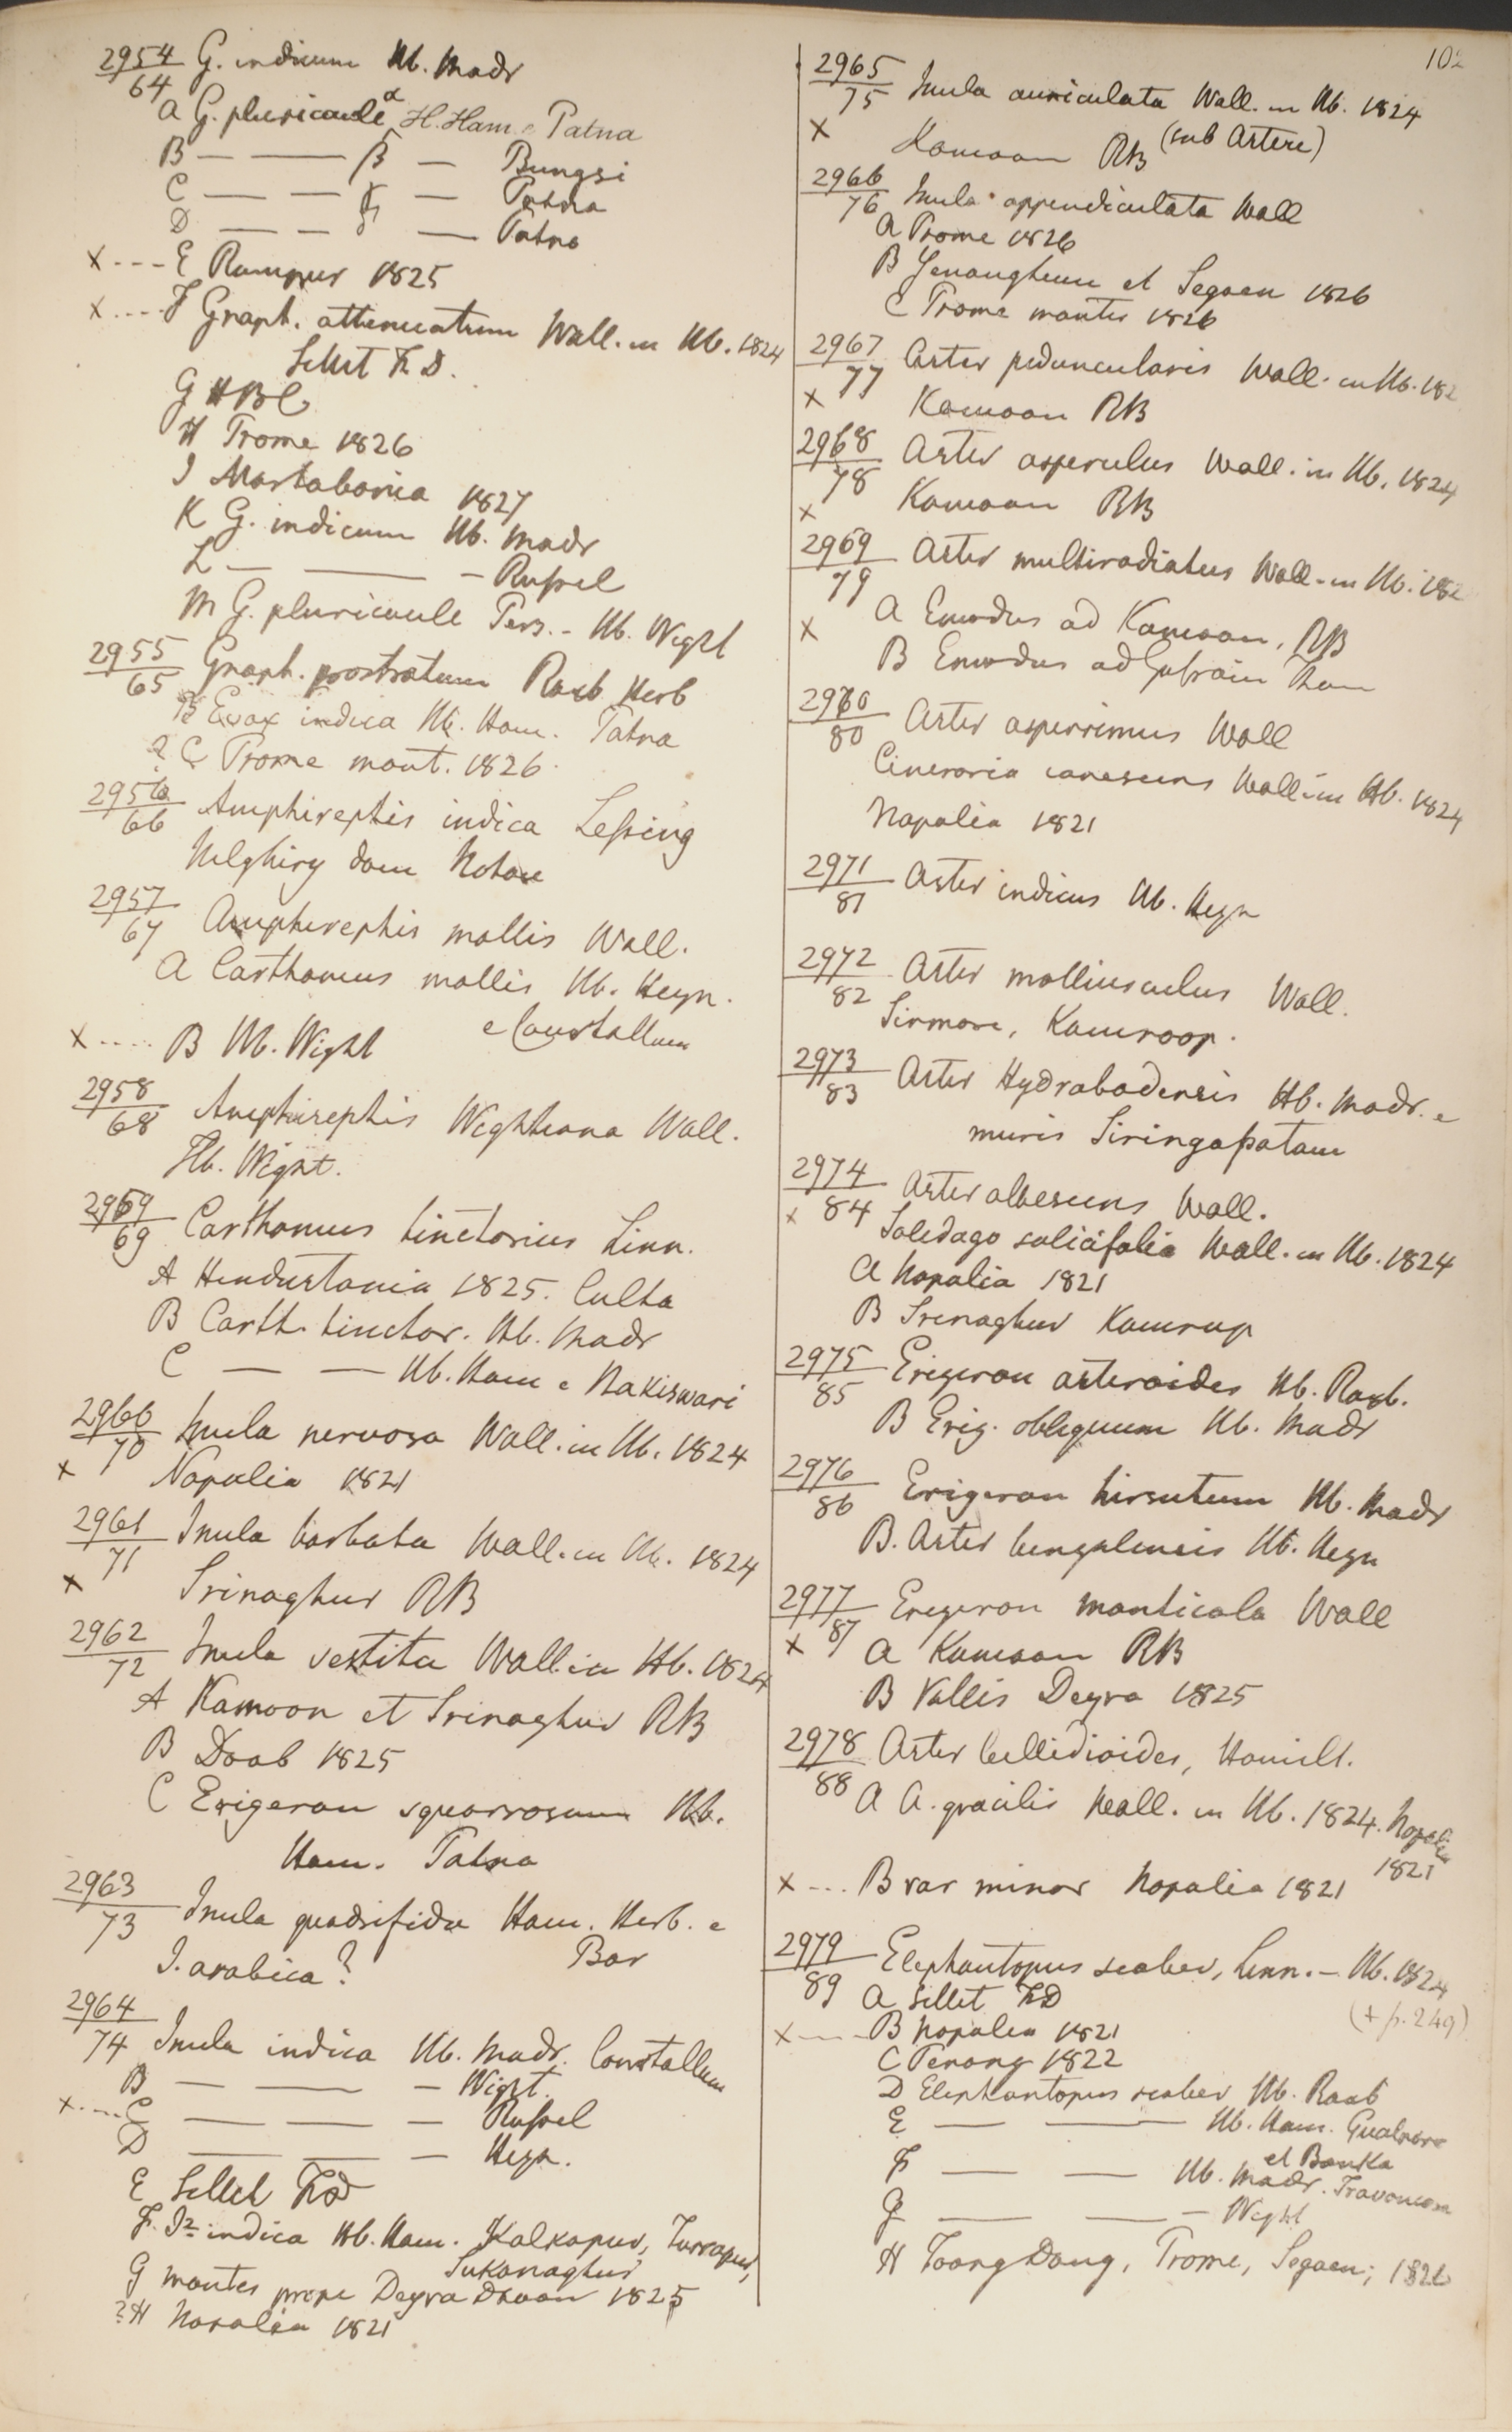 2954 G. indicum Hb. Madr
64
A G. pluricaule α H. Ham e Patna
B — — β — Bungsi
C — — γ — Patna
D — — δ — Patna
x ---- E Rampur 1825
x ---- F Graph. attenuatum Wall. in Hb. 1824
Sillet FD.
G HBC
H Prome 1826
I Martabania 1827
K G. indicum Hb. Madr
L — — — Russel
M G. pluricaule Pers. - Hb. Wight
2955 Graph. prostratum Roxb Herb
65
B Evax indica Hb. Ham. Patna
? C Prome mont. 1826
2956 Amphirephis indica Lessing
66
Nilghiry dom Noton
2957 Amphirephis mollis Wall.
67
A Carthamus mollis Hb. Heyn.
e Courtallum
x ..... B Hb. Wight
2958 Amphirephis Wightiana Wall.
68
Hb. Wight.
2959 Carthamus tinctorius Linn.
69
A Hindustania 1825. Culta
B Carth. tinctor. Hb. Madr
C — — Hb. Ham e Nakiswari
2960 Inula nervosa Wall. in Hb. 1824
70
x Napalia 1821
2961 Inula barbata Wall. in Hb. 1824
71
x Srinaghur RB
2962 Inula vestita Wall. in Hb. 1824
72
A Kamoon et Srinaghur RB
B Doab 1825
C Erigeron squarrosum Hb.
Ham. Patna
2963
73 Inula quadrifida Ham. Herb. e
I. arabica? Bar
2964
74 Inula indica Hb. Madr. Courtallum
B — — — Wight.
x ---- C — — — Russel
D — — — Heyn.
E Sillet FD
F. Iª indica Hb. Ham. Kalkapur, Turrapur,
Sukanaghur
G montes prope Deyra Dhoon 1825
? H Napalia 1821
102
2965 Inula auriculata Wall. in Hb. 1824
75
x Kamoon RB (sub Astere)
2966 Inula appendiculata Wall
76
A Prome 1826
B Yenangheun et Segaen 1826
C Prome montes 1826
2967 Aster peduncularis Wall. in Hb. 182
77
x Kamoon RB
2968 Aster asperulus Wall. in Hb. 1824
78
x Kamoon RB
2969 Aster multiradiatus Wall. in Hb. 182
79
x A Emodus ad Kamoon, RB
B Emodus ad Gosain Than
2970 Aster asperrimus Wall
80
Cineraria canescens Wall. in Hb. 1824
Napalia 1821
2971 Aster indicus Hb. Heyn
81
2972 Aster molliusculus Wall.
82
Sirmore, Kamroop.
2973 Aster Hydrabadensis Hb. Madr. e
83
muris Siringapatam
2974 Aster albescens Wall.
x 84
Solidago salicifolia Wall. in Hb. 1824
A Napalia 1821
B Srinaghur Kamrup
2975 Erigeron asteroides Hb. Roxb.
85
B Erig. obliquum Hb. Madr
2976 Erigeron hirsutum Hb. Madr
86
B. Aster bengalensis Hb. Heyn
2977 Erigeron monticola Wall
x 87 A Kamoon RB
B Vallis Deyra 1825
2978 Aster bellidioides, Hamilt.
88
A A. gracilis Wall. in Hb. 1824. Napalia
1821
x ---- B var minor Napalia 1821
2979 Elephantopus scaber, Linn. - Hb. 1824
89
(+ p. 249)
A Sillet FD
x ---- B Napalia 1821
C Penang 1822
D Elephantopus scaber Hb. Roxb
E — — Hb. Ham. Gualpara
et Banka
F — — Hb. Madr. Travancor
G — — — Wight
H Toong Dong, Prome, Segaen; 1826